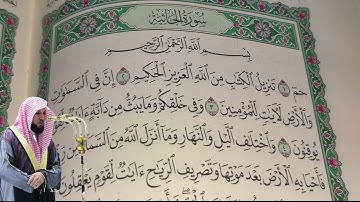 سُورَةُ الجَاثِيَةِ
بِسْمِ اللَّهِ الرَّحْمَٰنِ الرَّحِيمِ
حمٓ ١ تَنزِيلُ الْكِتَابِ مِنَ اللَّهِ الْعَزِيزِ الْحَكِيمِ ٢ إِنَّ فِي السَّمَاوَاتِ
وَالْأَرْضِ لَآيَاتٍ لِّلْمُؤْمِنِينَ ٣ وَفِي خَلْقِكُمْ وَمَا يَبُثُّ مِن دَابَّةٍ ءَايَاتٌ
يُوقِنُونَ ٤ وَاخْتِلَافِ اللَّيْلِ وَالنَّهَارِ وَمَا أَنزَلَ اللَّهُ مِنَ السَّمَاءِ مِن رِّزْقٍ
فَأَحْيَا بِهِ الْأَرْضَ بَعْدَ مَوْتِهَا وَتَصْرِيفِ الرِّيَاحِ ءَايَاتٌ لِّقَوْمٍ يَعْقِلُونَ